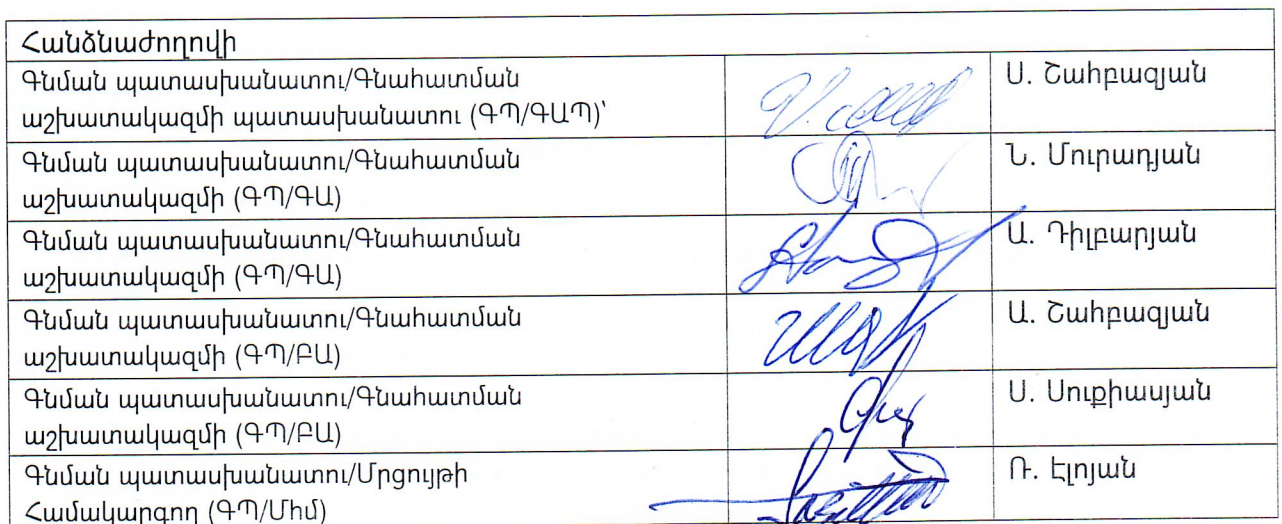 Հանձնաժողովի
Գնման պատասխանատու/Գնահատման
աշխատակազմի պատասխանատու (ԳՊ/ԳԱՊ)՝
Ս. Շահբազյան
Գնման պատասխանատու/Գնահատման
աշխատակազմի (ԳՊ/ԳԱ)
Ն. Մուրադյան
Գնման պատասխանատու/Գնահատման
աշխատակազմի (ԳՊ/ԳԱ)
Ա. Դիլբարյան
Գնման պատասխանատու/Գնահատման
աշխատակազմի (ԳՊ/ԲԱ)
Ա. Շահբազյան
Գնման պատասխանատու/Գնահատման
աշխատակազմի (ԳՊ/ԲԱ)
Ս. Սուքիասյան
Գնման պատասխանատու/Մրցույթի
Համակարգող (ԳՊ/Մհմ)
Ռ. Էլոյան